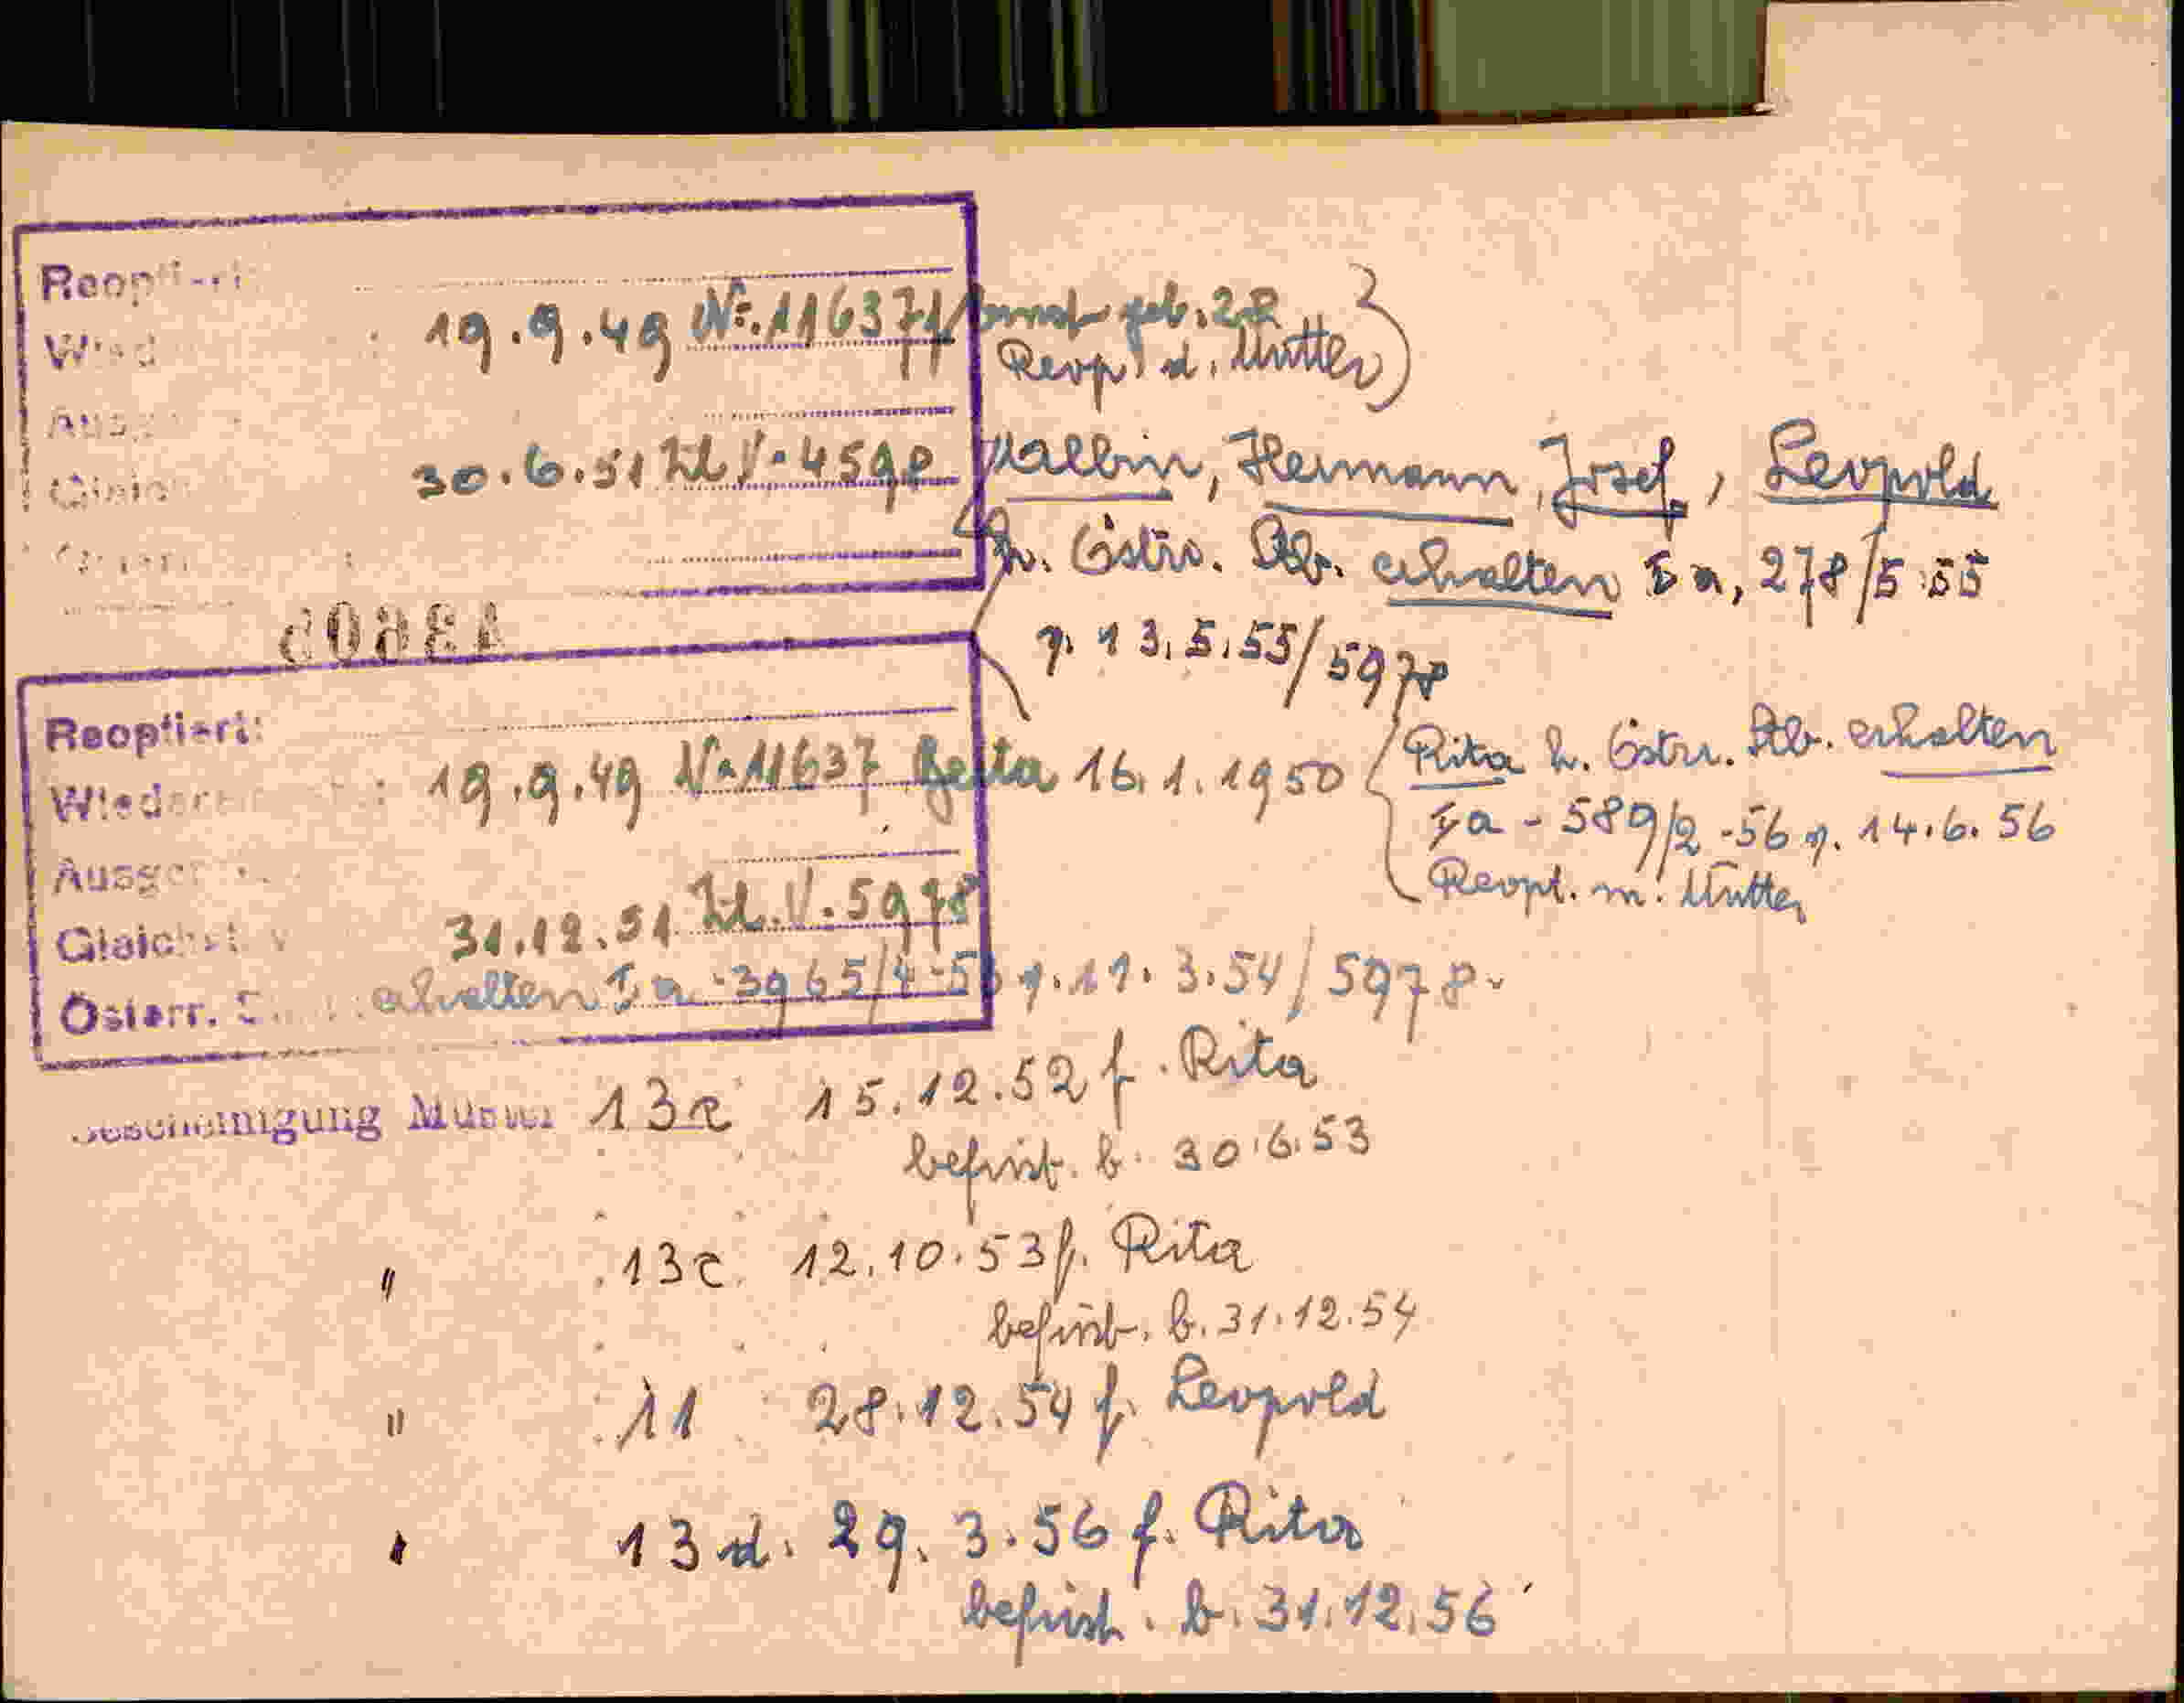 Reoptiert:
19.9.49 No. 11637/ Ernst geb. 28
Reop. d. Mutter)
30.6.51 Zl V. 4598 Malbin, Hermann, Josef, Leopold
h. Östr. Stb. erhalten Ia, 278/5.55
p. 13.5.55/5978
Reoptiert:
19.9.49 No 11637 16.1.1950
Rita h. Östr. Stb. erhalten
Ia - 589/2 -56 p. 14.6.56
Reopt. m. Mutter
31.12.51 Zl. V. 5978
Österr. erhalten Ia -3965/4-53 p. 11.3.54/5978.
Bescheinigung Muster 13c 15.12.52 f. Rita
befrist. b. 30.6.53
" 13c. 12.10.53 f. Rita
befrist. b. 31.12.54
" 11 28.12.54 f. Leopold
13d. 29.3.56 f. Rita
befrist. b. 31.12.56